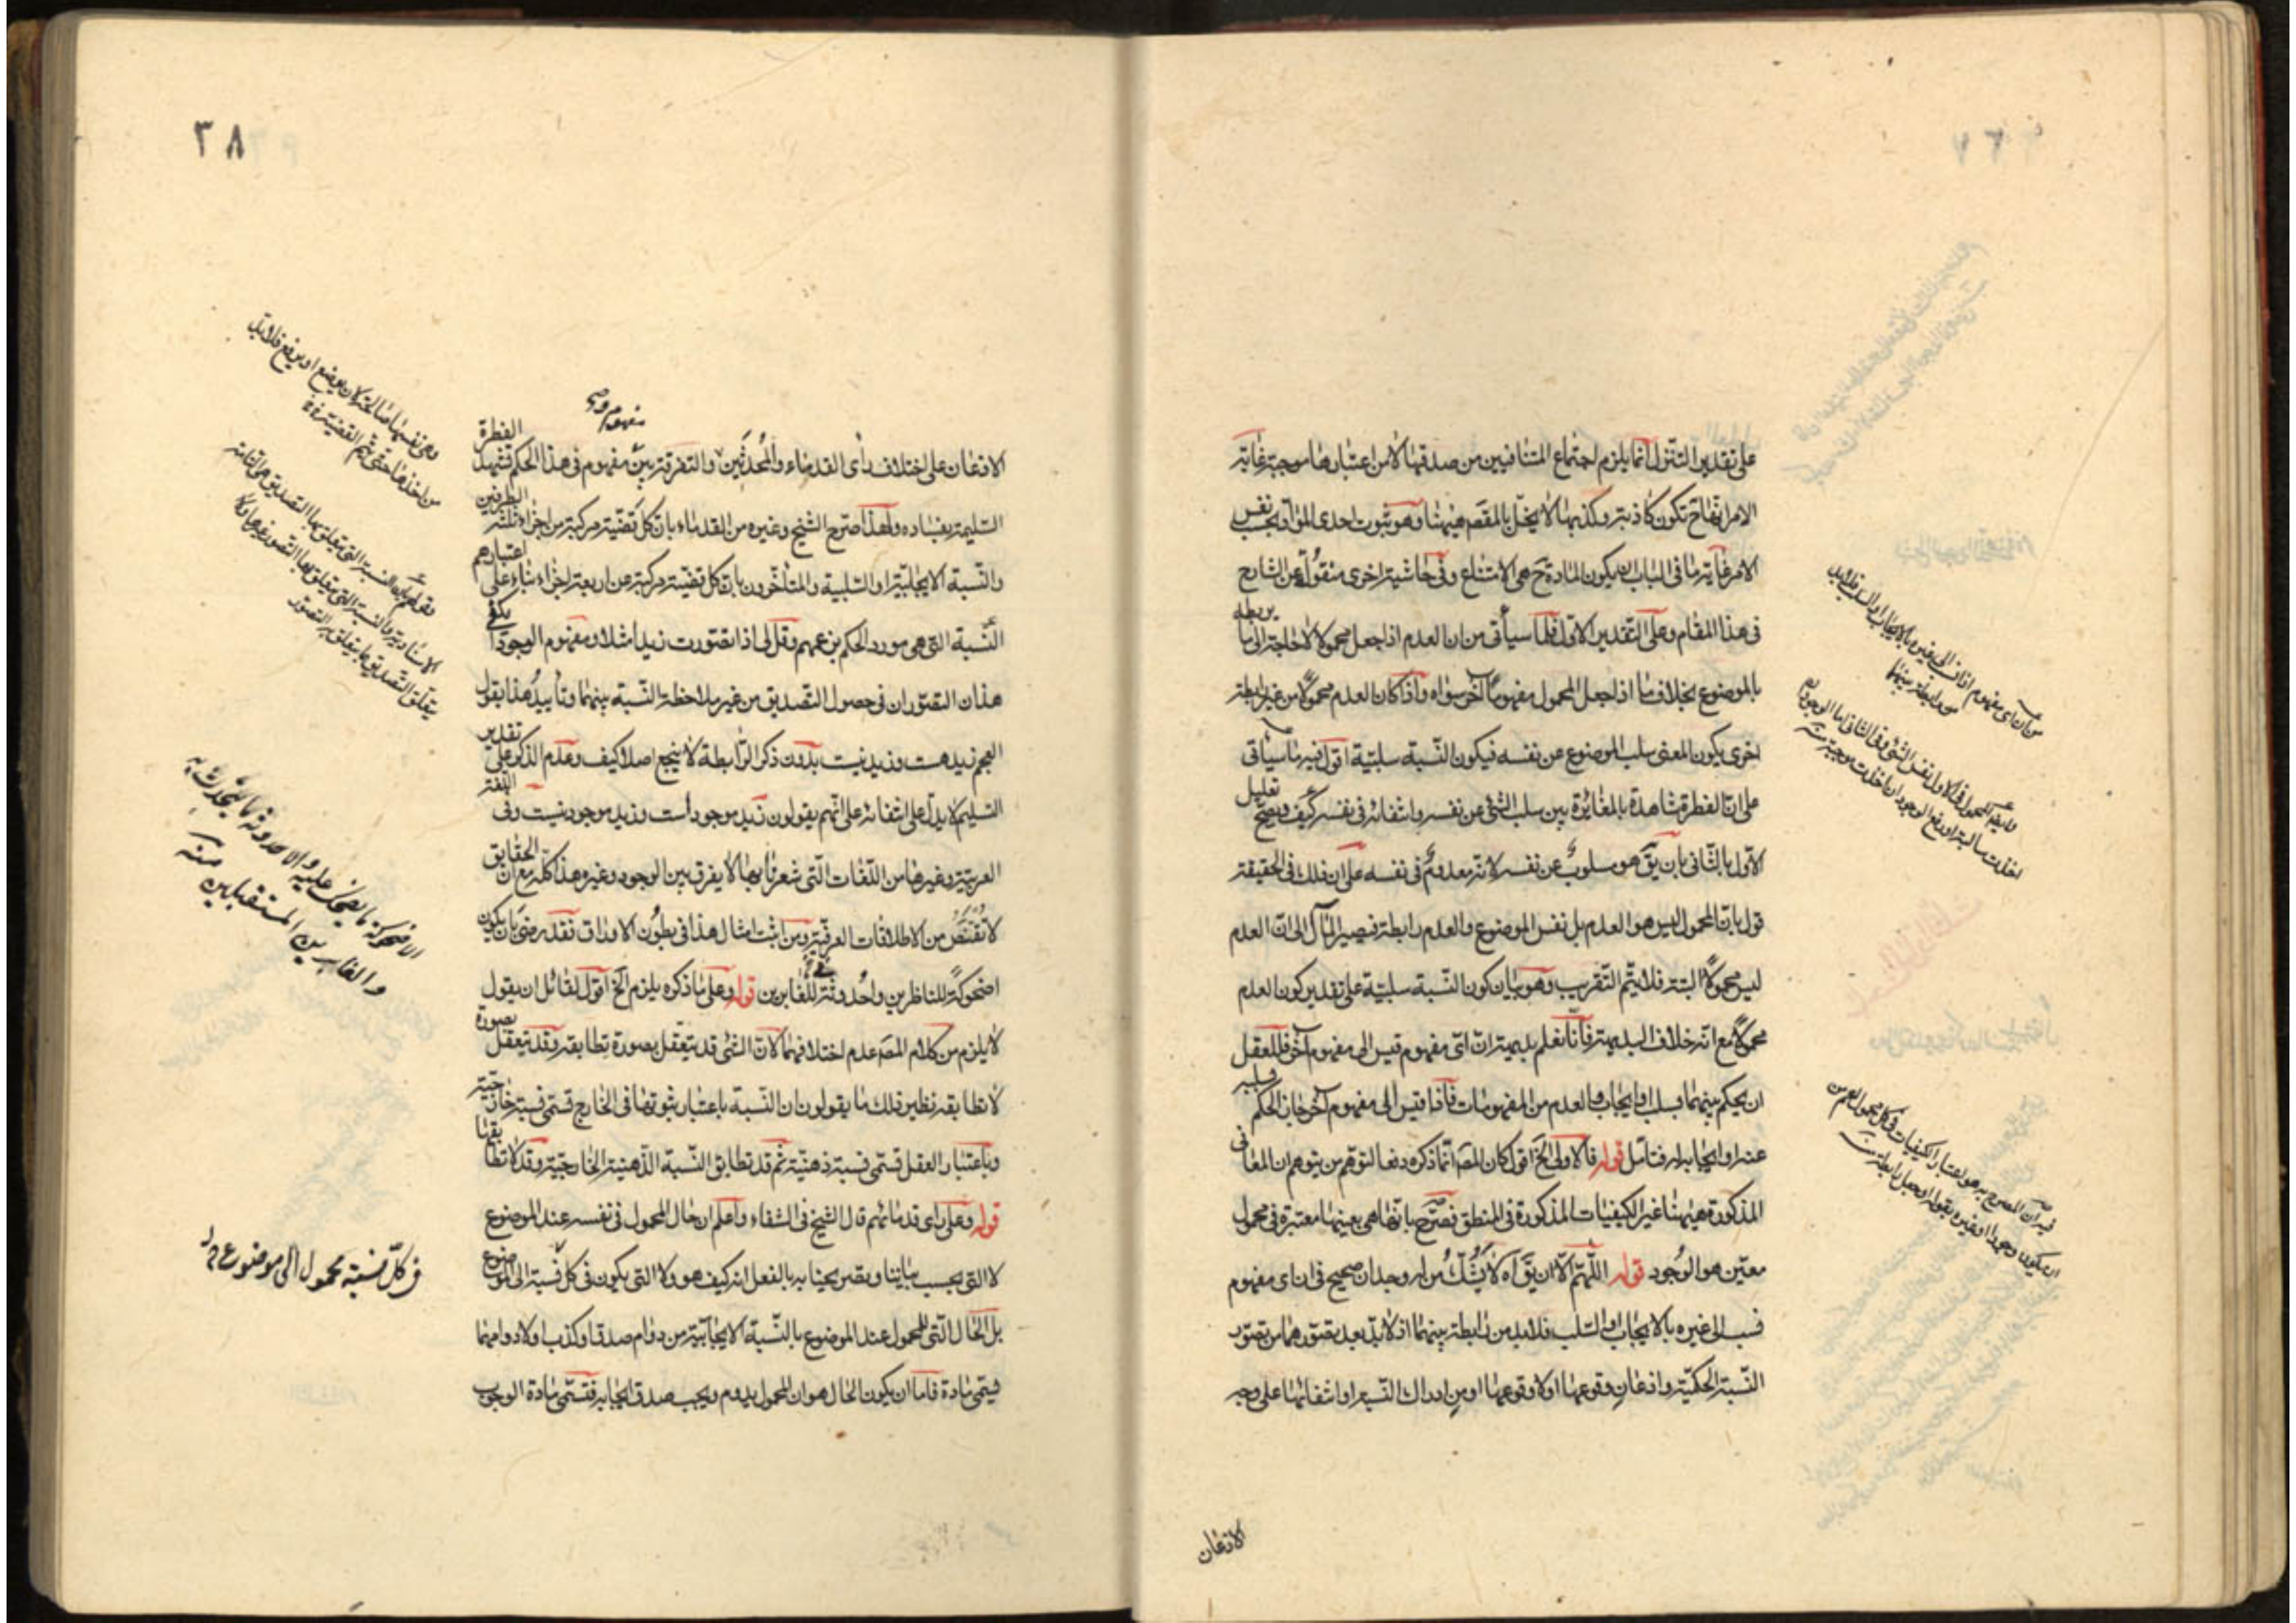 على تقدير التنزل انما يلزم اجتماع المتنافيين من صدقها لا من اعتبارها موجبة غاية
الامر انها ح تكون كاذبة وكذبها لا يخل بالمقصم هيهنا وهو ثبوت احدى المواد بحسب نفس
الامر غاية ما في الباب ان يكون المادة ح هي الامتناع وفي حاشية اخرى منقولة عن الشارح
في هذا المقام وعلى التقدير الاول فلما سيأتي من ان العدم اذا جعل محمولا لا حاجة الى ما يربطه
بالموضوع بخلاف ما اذا جعل المحمول مفهوما آخر سواه واذا كان العدم محمولا من غير رابطة
اخرى يكون المعنى سلب الموضوع عن نفسه فيكون النسبة سلبية اقول فيه ما سيأتي
على ان الفطرة شاهدة بالمغايرة بين سلب الشئ عن نفسه وانتفائه في نفسه كيف ويصح تعليل
الاول بالثاني بان يق هو مسلوب عن نفسه لانه معدوم في نفسه على ان ذلك في الحقيقة
قول بان المحمول ليس هو العدم بل نفس الموضوع والعدم رابطة فيصير المآل الى ان العدم
ليس محمولا البتة فلا يتم التقريب وهو بيان كون النسبة سلبية على تقدير كون العدم
محمولا مع انه خلاف البديهة فانا نعلم بديهة ان اي مفهوم قيس الى مفهوم آخر فللعقل
ان يحكم بينهما بسلب او ايجاب والعدم من المفهومات فاذا قيس الى مفهوم آخر جاز الحكم بسلبه
عنه او ايجابه له فتأمل قوله فالاولى الخ اقول كان المصم انما ذكره دفعا لتوهم من يتوهم ان المعاني
المذكورة هيهنا غير الكيفيات المذكورة في المنطق فصرح بانها هي بعينها معتبرة في محمول
معين هو الوجود قوله اللهم الا ان يق آه لا يشك من له وجدان صحيح في ان اي مفهوم
نسب الى غيره بالايجاب او السلب فلابد من رابطة بينهما اذ لابد بعد تصورهما من تصور
النسبة الحكمية واذعان وقوعها او لا وقوعها او من ادراك النسبة او انتفائها على وجه
الاذعان
٣٨
مفهوم و
الاذعان على اختلاف رأى القدماء والمحدثين والتفرقة بين مفهوم في هذا الحكم تشهد الفطرة
السليمة بفساده ولهذا صرح الشيخ وغيره من القدماء بان كل قضية مركبة من اجزاء ثلثه الطرفين
والنسبة الايجابية او السلبية والمتأخرون بان كل قضية مركبة من اربعة اجزاء بناء على اعتبارهم
النسبة التي هي مورد الحكم بزعمهم وقل لى اذا تصورت زيدا مثلا ومفهوم الوجود أ يكفى
هذان التصوران في حصول التصديق من غير ملاحظة النسبة بينهما وتأييد هذا بقول
العجم زيد هست وزيد نيست بدون ذكر الرابطة لا ينجع اصلا كيف وعدم الذكر على تقدير
التسليم لا يدل على انتفائه على انهم يقولون زيد موجود است وزيد موجود نيست وفى اللغة
العربية وغيرها من اللغات التى شعرنا بها لا يفرق بين الوجود وغيره هذا كله مع ان الحقايق
لا تقتنص من الاطلاقات العرفية ومن اثبت امثال هذا في بطون الاوراق فقد رضى بان يكون
اضحوكة للناظرين واحدوثة للغابرين قوله وعلى ما ذكره يلزم الخ اقول لقائل ان يقول
لا يلزم من كلام المصم عدم اختلافهما لان الشئ قد يتعقل بصورة تطابقه وقد يتعقل بصورة
لا تطابقه نظير ذلك ما يقولون ان النسبة باعتبار ثبوتها في الخارج تسمى نسبة خارجية
وباعتبار العقل تسمى نسبة ذهنية ثم قد تطابق النسبة الذهنية الخارجية وقد لا تطابقها
قوله وعلى رأى قدمائهم قال الشيخ في الشفاء واعلم ان حال المحمول في نفسه عند الموضوع
لا التى بحسب بياننا وتصريحنا به بالفعل انه كيف هو ولا التى يكون في كل نسبة الى الموضوع
بل الحال التى للمحمول عند الموضوع بالنسبة الايجابية من دوام صدق او كذب او لا دوامهما
يسمى مادة فاما ان يكون الحال هو ان المحمول يدوم ويجب صدق ايجابه فتسمى مادة الوجوب
الاضحوكة ما يضحك عليه والاحدوثة ما يتحدث به
والغابرين المستقبلين منه
في كل نسبة محمول الى موضوع